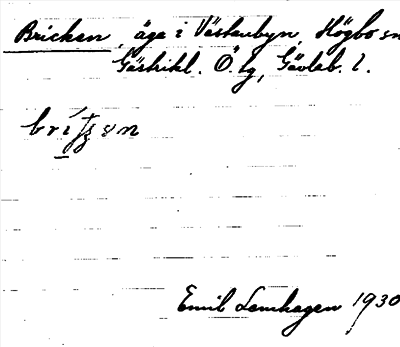 Bricken, äga i Västanbyn, Högbo sn
Gästrikl. Ö. tg, Gävleb. l.
Emil Lemhagen 1930